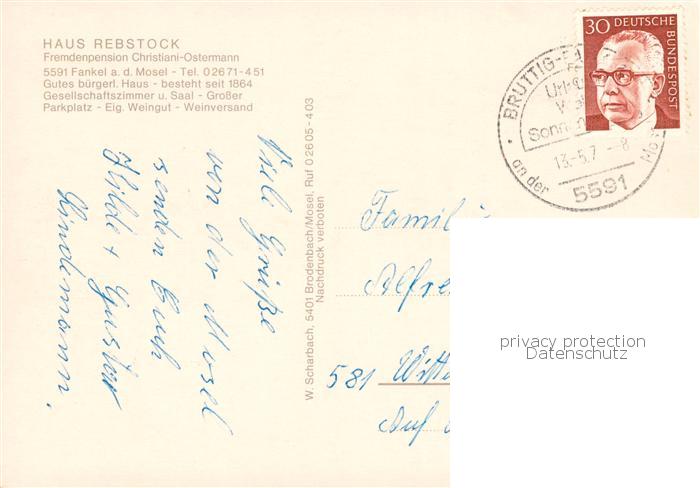 HAUS REBSTOCK
Fremdenpension Christiani-Ostermann
5591 Fankel a. d. Mosel - Tel. 02671-451
Gutes bürgerl. Haus - besteht seit 1864
Gesellschaftszimmer u. Saal - Großer
Parkplatz - Eig. Weingut - Weinversand
Viele Grüße
von der Mosel
senden Euch
Hilde + Gustav
Lindemann.
W. Scharbach, 5401 Brodenbach/Mosel, Ruf 02605-403
Nachdruck verboten
30 DEUTSCHE
BUNDESPOST
BRUTTIG-FA
Sonn
13.-5.7 -8
an der Mo
5591
Familie
Alfre
581 Witte
Auf d
privacy protection
Datenschutz